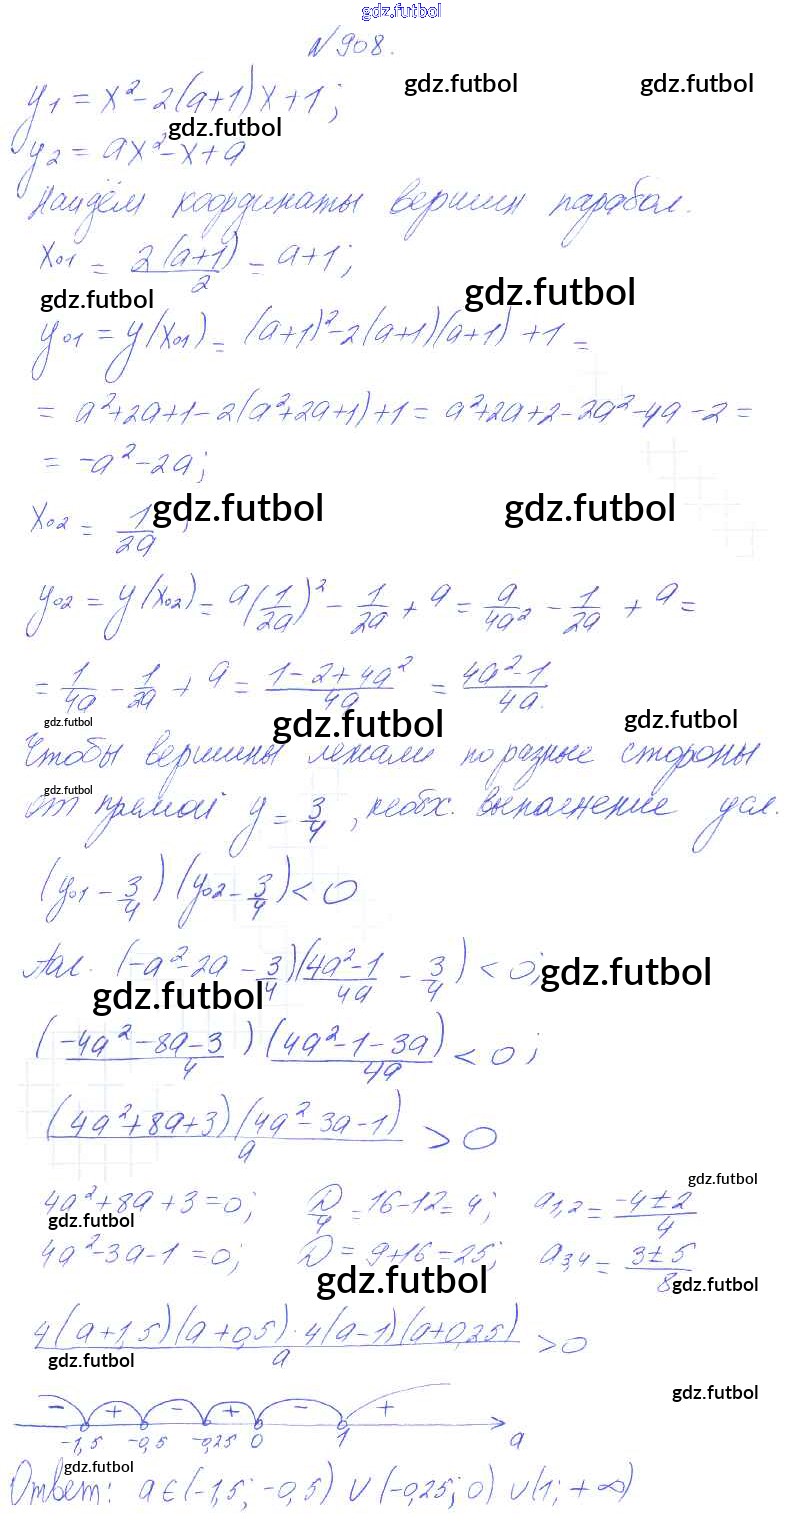 gdz.futbol
№908.
y₁ = x² - 2(a+1)x+1;
gdz.futbol gdz.futbol
gdz.futbol
y₂ = ax² - x + a
Найдём координаты вершин парабол.
x₀₁ = 2(a+1)/2 = a+1;
gdz.futbol gdz.futbol
y₀₁ = y(x₀₁) = (a+1)² - 2(a+1)(a+1) + 1 =
= a²+2a+1-2(a²+2a+1)+1 = a²+2a+2-2a²-4a-2 =
= -a²-2a;
x₀₂ = 1/2a ;
gdz.futbol gdz.futbol
y₀₂ = y(x₀₂) = a(1/2a)² - 1/2a + a = a/4a² - 1/2a + a =
= 1/4a - 1/2a + a = 1-2+4a²/4a = 4a²-1/4a.
gdz.futbol gdz.futbol gdz.futbol
Чтобы вершины лежали по разные стороны
gdz.futbol
от прямой y = 3/4, необх. выполнение усл.
(y₀₁ - 3/4)(y₀₂ - 3/4) < 0
(-a²-2a - 3/4)(4a²-1/4a - 3/4) < 0;
gdz.futbol gdz.futbol
(-4a²-8a-3/4)(4a²-1-3a)/4a < 0;
(4a²+8a+3)(4a²-3a-1)/a > 0
gdz.futbol
4a²+8a+3=0; D/4 = 16-12 = 4; a₁,₂ = -4±2/4
gdz.futbol
4a²-3a-1=0; D = 9+16 = 25; a₃,₄ = 3±5/8
gdz.futbol gdz.futbol
4(a+1,5)(a+0,5)·4(a-1)(a+0,25)/a > 0
gdz.futbol gdz.futbol
- + - + - +
-1,5 -0,5 -0,25 0 1 a
gdz.futbol
Ответ: a∈(-1,5; -0,5) ∪ (-0,25; 0) ∪ (1; +∞)